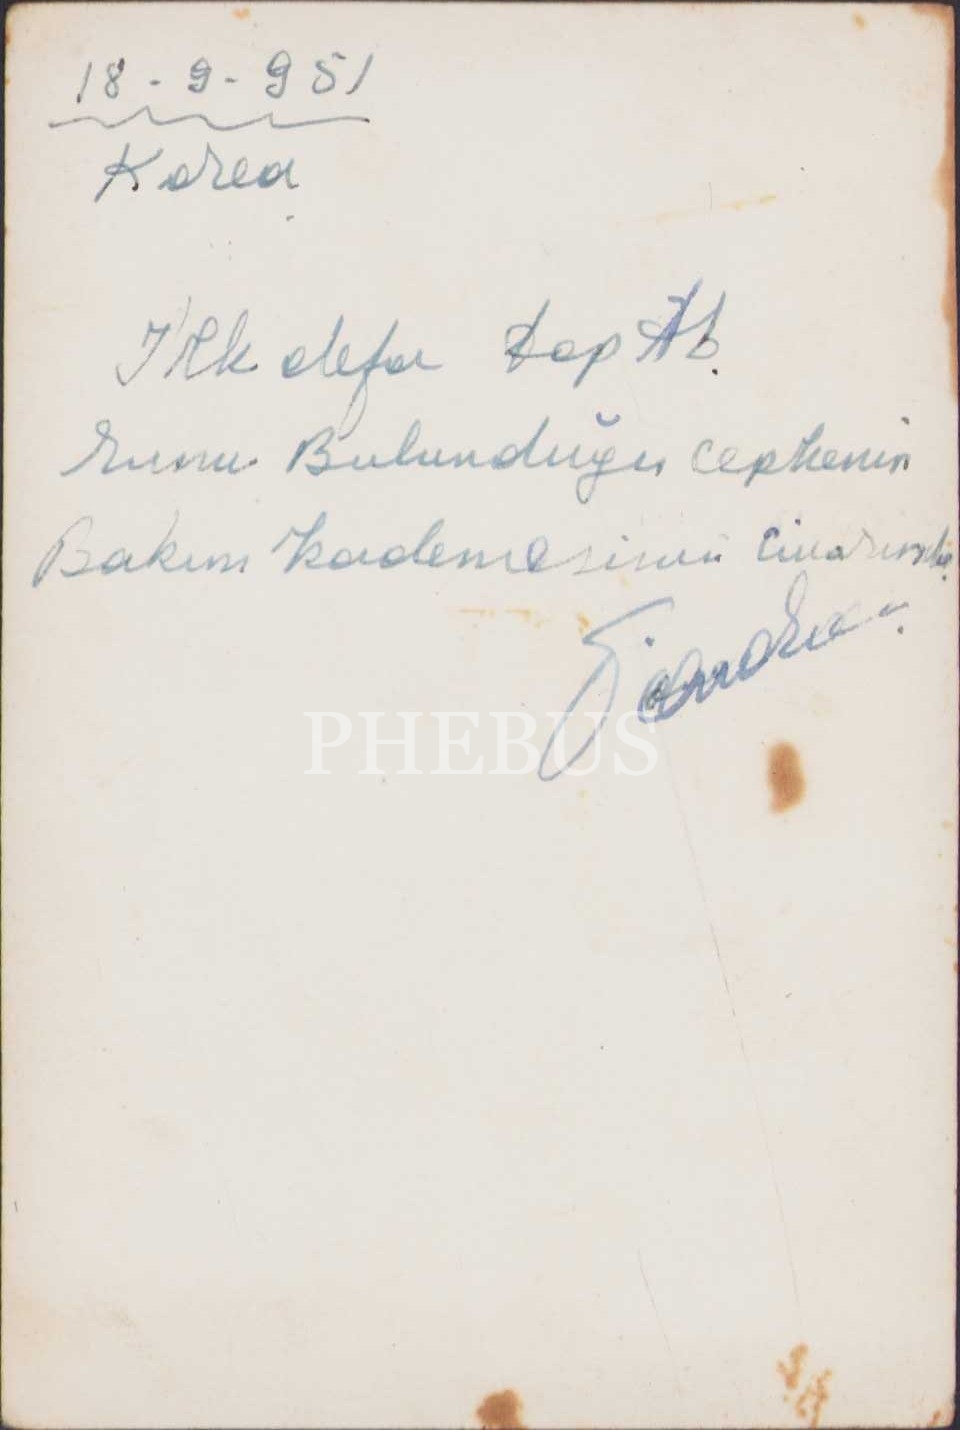 18-9-951
Korea
İlk defa Top Ab.
Bulunduğu cephenin
Bakım kademesinin civarında
PHEBUS